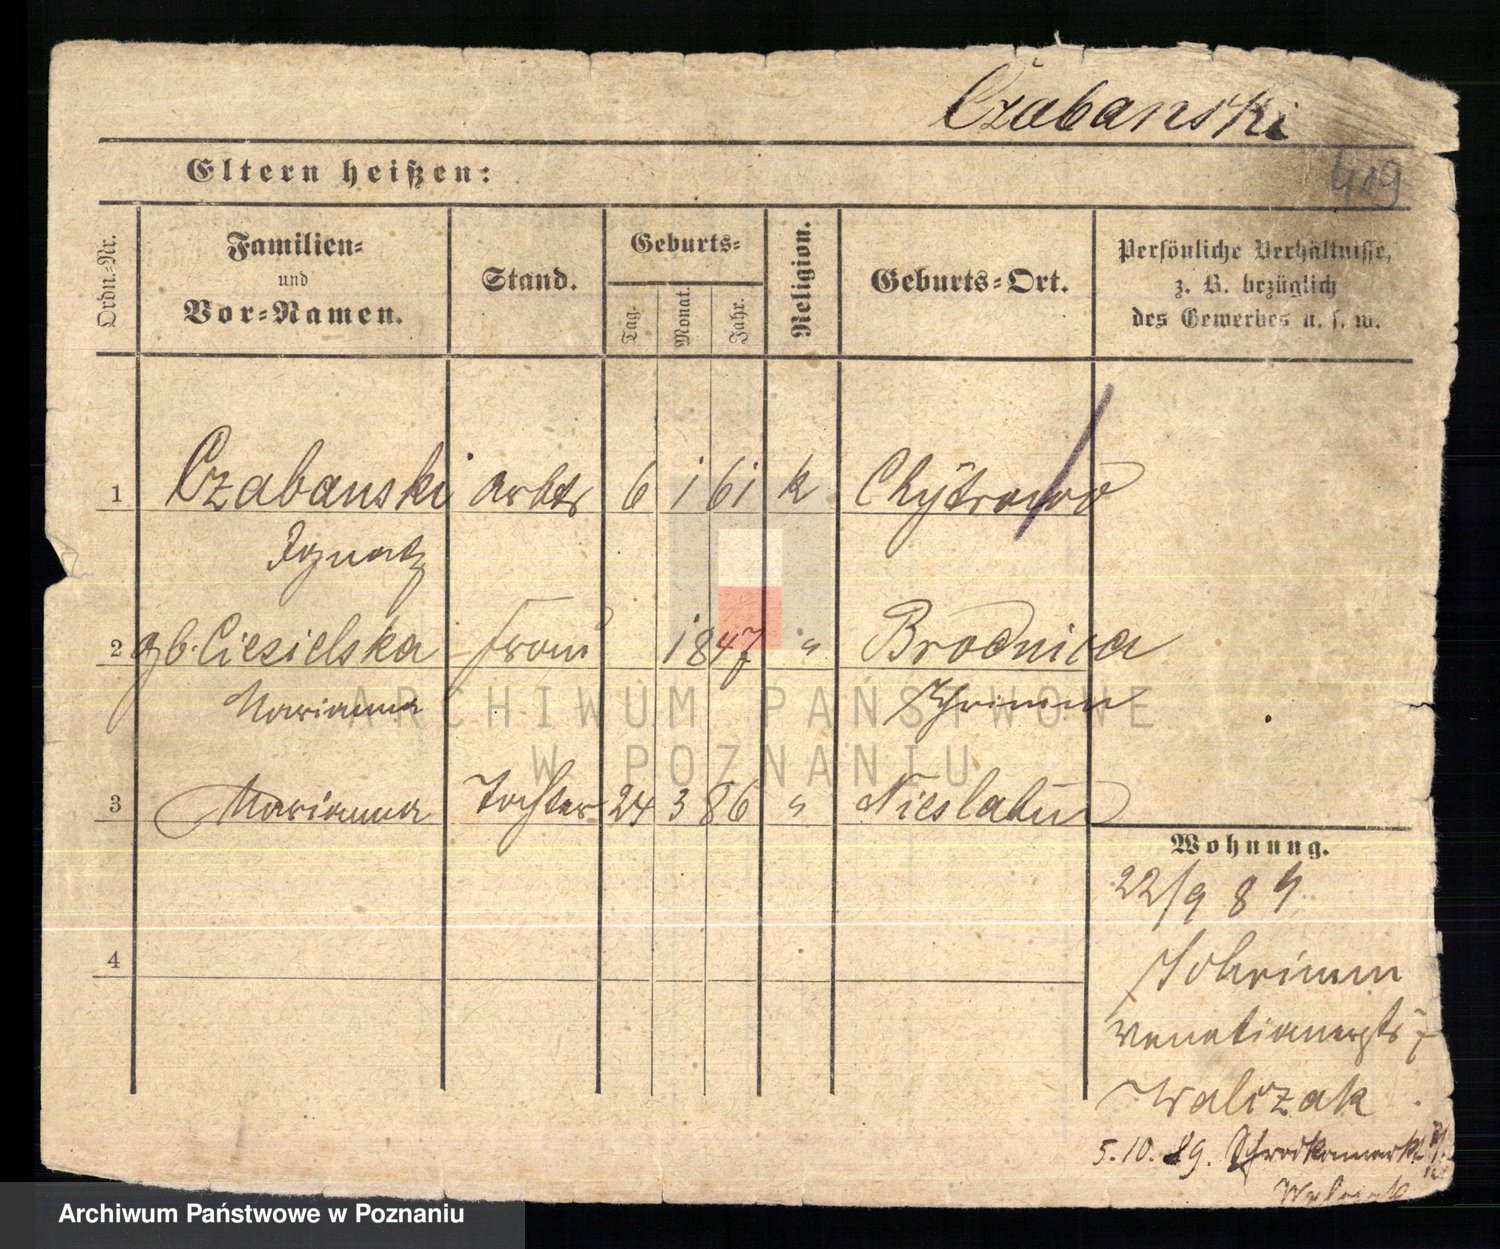 Czabanski
419
Eltern heißen:
Ordn.-Nr.
Familien-
und
Vor-Namen.
Stand.
Geburts-
Tag.
Monat.
Jahr.
Religion.
Geburts-Ort.
Persönliche Verhältnisse,
z. B. bezüglich
des Gewerbes u. s. w.
1 Czabanski Arbtr 6 1 61 k Chytrowo
Ignatz
2 gb. Ciesielska Frau 1847 " Brodnica
Marianna Schrimm
3 Marianna Tochter 24 3 86 " Nieslabin
Wohnung.
22/9 89
Schrimm
Venetianerstr 7
Walczak
4
5.10.89. Schrodkamarkt
ARCHIWUM PAŃSTWOWE
W POZNANIU
Archiwum Państwowe w Poznaniu